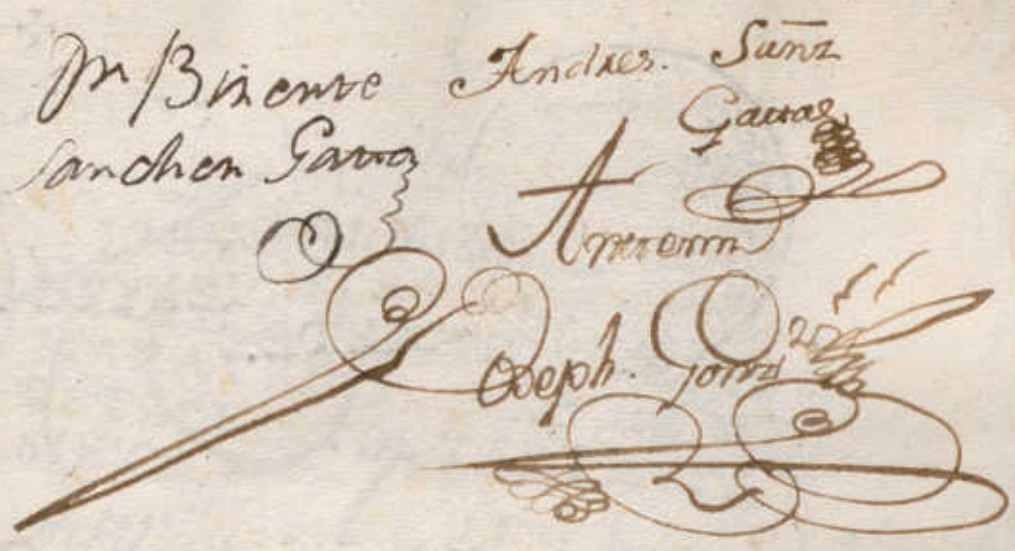 Dn Bizente
sanchez Garza
Andres. Sanz
Garzas
Ante mi
Joseph. Gonz